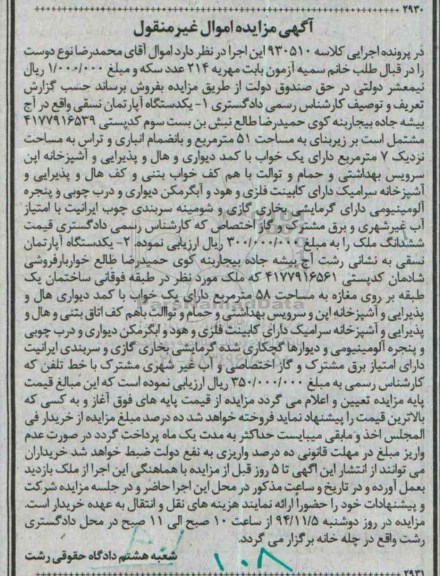 ۲۹۳۰
آگهی مزایده اموال غیر منقول
در پرونده اجرایی کلاسه ۹۳۰۵۱۰ این اجرا در نظر دارد اموال آقای محمدرضا نوع دوست
را در قبال طلب خانم سمیه آزمون بابت مهریه ۲۱۴ عدد سکه و مبلغ ۱/۰۰۰/۰۰۰ ریال
نیمعشر دولتی در حق صندوق دولت از طریق مزایده بفروش برساند حسب گزارش
تعریف و توصیف کارشناس رسمی دادگستری ۱- یکدستگاه آپارتمان نسقی واقع در آج
بیشه جاده بیجاربنه کوی حمیدرضا طالع نبش بن بست سوم کدپستی ۴۱۷۷۹۱۶۵۳۹
مشتمل است بر زیربنای به مساحت ۵۱ مترمربع و بانضمام انباری و تراس به مساحت
نزدیک ۷ مترمربع دارای یک خواب با کمد دیواری و هال و پذیرایی و آشپزخانه اپن
سرویس بهداشتی و حمام و توالت با هم کف خواب بتنی و کف هال و پذیرایی و
آشپزخانه سرامیک دارای کابینت فلزی و هود و آبگرمکن دیواری و درب چوبی و پنجره
آلومینیومی دارای گرمایشی بخاری گازی و شومینه سربندی چوب ایرانیت با امتیاز
آب غیرشهری و برق مشترک و گاز اختصاص که کارشناس رسمی دادگستری قیمت
ششدانگ ملک را به مبلغ ۳۰۰/۰۰۰/۰۰۰ ریال ارزیابی نموده. ۲- یکدستگاه آپارتمان
نسقی به نشانی رشت آج بیشه جاده بیجاربنه کوی حمیدرضا طالع خواربارفروشی
شادمان کدپستی ۴۱۷۷۹۱۶۵۶۱ که ملک مورد نظر در طبقه فوقانی ساختمان یک
طبقه بر روی مغازه به مساحت ۵۸ مترمربع دارای یک خواب با کمد دیواری هال و
پذیرایی و آشپزخانه اپن و سرویس بهداشتی و حمام و توالت باهم کف اتاق بتنی و هال و
پذیرایی و آشپزخانه سرامیک دارای کابینت فلزی و هود و ابگرمکن دیواری و درب چوبی
و پنجره آلومینیومی و دیوارها گچکاری شده گرمایشی بخاری گازی و سربندی ایرانیت
دارای امتیاز برق مشترک و گاز اختصاصی و آب غیر شهری مشترک با خط تلفن که
کارشناس رسمی به مبلغ ۳۵۰/۰۰۰/۰۰۰ ریال ارزیابی نموده است که این مبالغ قیمت
پایه مزایده تعیین و اعلام می گردد مزایده از قیمت پایه های فوق آغاز و به کسی که
بالاترین قیمت را پیشنهاد نماید فروخته خواهد شد ده درصد مبلغ مزایده از خریدار فی
المجلس اخذ و مابقی میبایست حداکثر به مدت یک ماه پرداخت گردد در صورت عدم
واریز مبلغ در مهلت قانونی ده درصد واریزی به نفع دولت ضبط خواهد شد خریداران
می توانند از انتشار این آگهی تا ۵ روز قبل از مزایده با هماهنگی این اجرا از ملک بازدید
بعمل آورده و در تاریخ و ساعت مذکور در محل این اجرا حاضر و در جلسه مزایده شرکت
و پیشنهادات خود را حضوراً ارائه نمایند هزینه های نقل و انتقال به عهده خریدار است.
مزایده در روز دوشنبه ۹۴/۱۱/۵ از ساعت ۱۰ صبح الی ۱۱ صبح در محل دادگستری
رشت واقع در چله خانه برگزار می گردد.
شعبه هشتم دادگاه حقوقی رشت
۱۰۸
۲۹۳۱